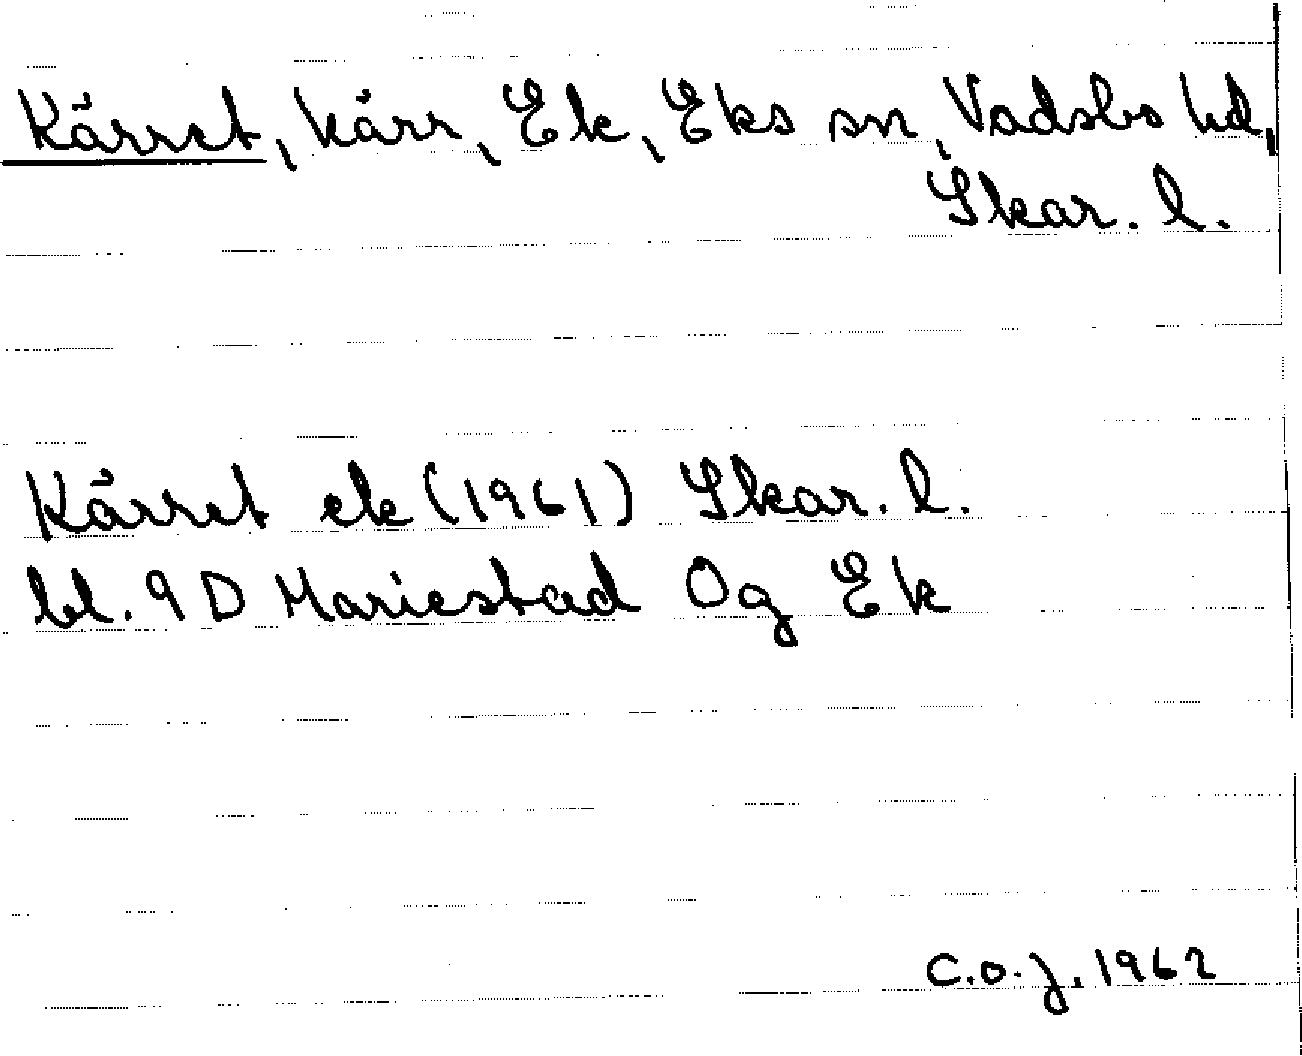 Kärret, kärr, Ek, Eks sn, Vadsbo hd,
Skar. l.
Kärret ek (1961) Skar. l.
bl. 9 D Mariestad Og Ek
C.O.J. 1962